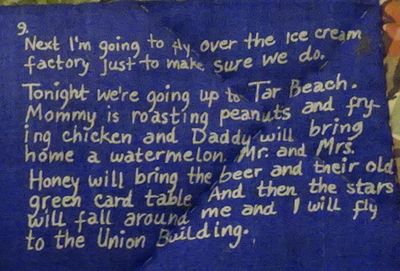 9.
Next I'm going to fly over the Ice cream
factory just to make sure we do.
Tonight we're going up to Tar Beach.
Mommy is roasting peanuts and fry-
ing chicken and Daddy will bring
home a watermelon. Mr. and Mrs.
Honey will bring the beer and their old
green card table. And then the stars
will fall around me and I will fly
to the Union Building.